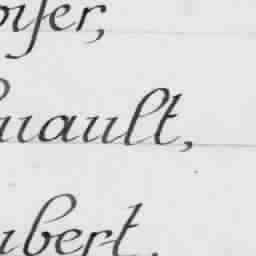 oyser,
uault,
ubert.